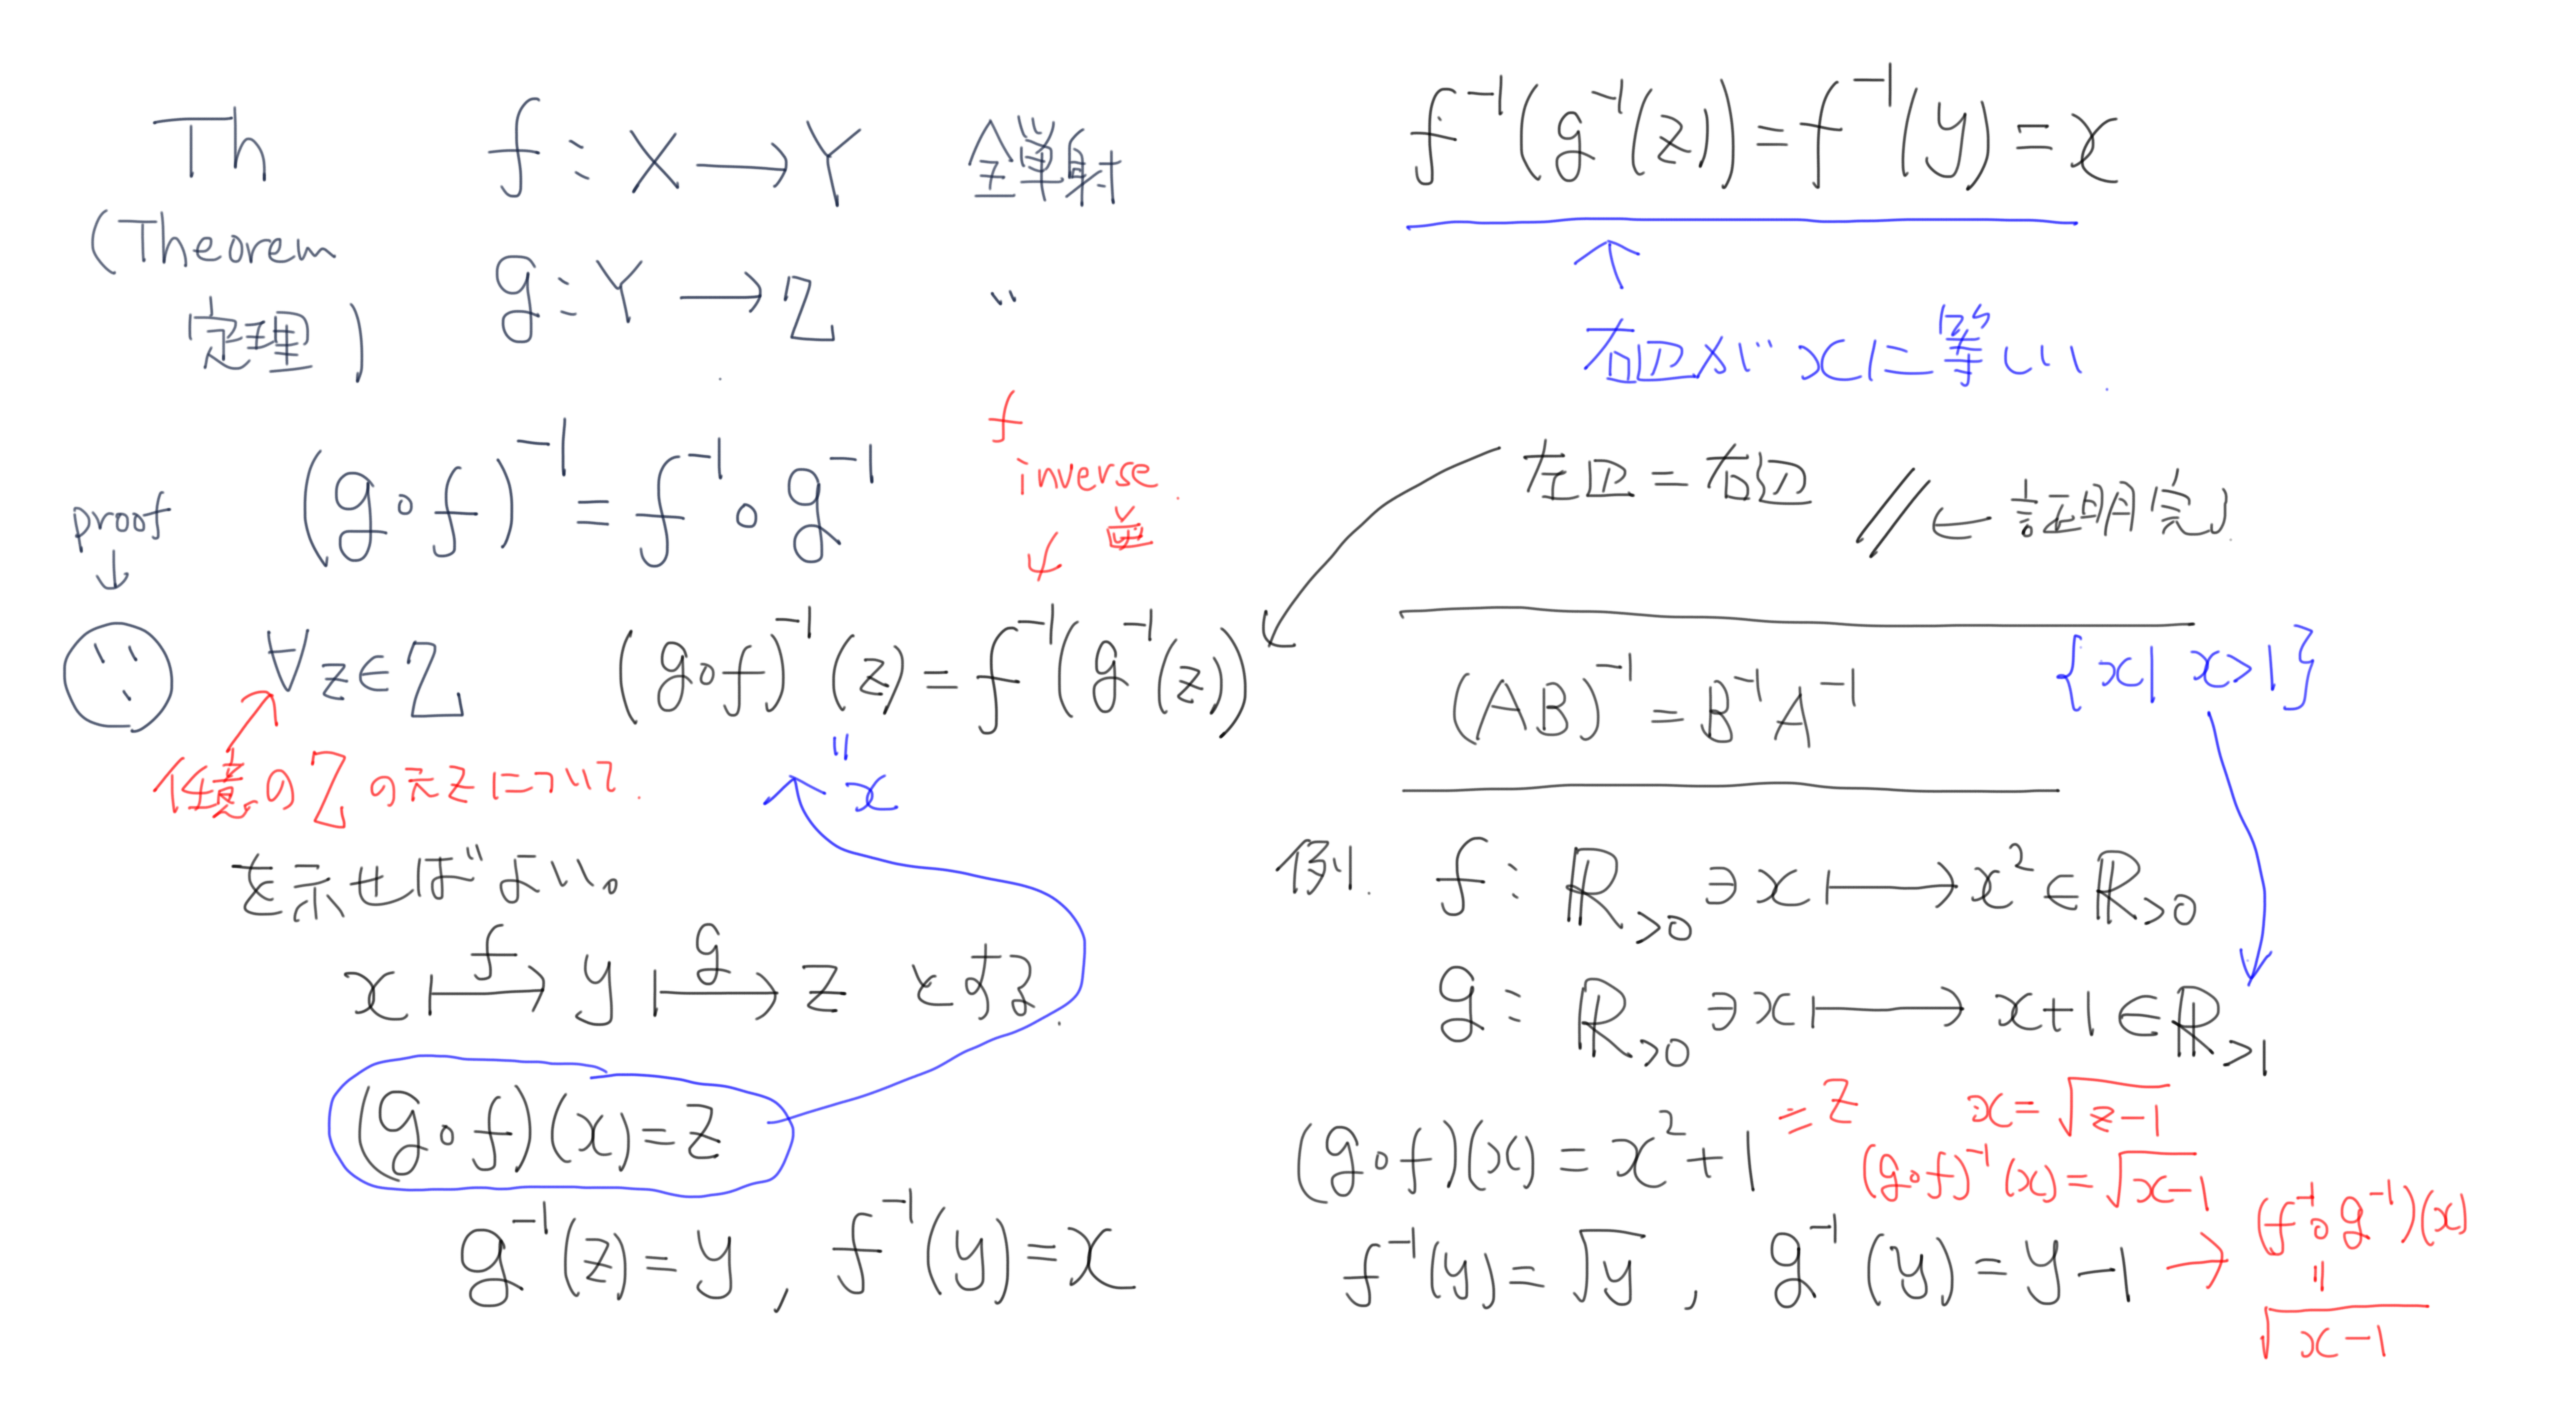 Th
(Theorem
定理)
f : X → Y 全単射
g : Y → Z 〃
(g∘f)⁻¹ = f⁻¹∘g⁻¹
proof
↓
f
inverse.
逆
∀z∈Z (g∘f)⁻¹(z) = f⁻¹(g⁻¹(z))
〃
x
任意のZの元zについて.
を示せばよい。
x ↦ y ↦ z とする.
f g
(g∘f)(x) = z
g⁻¹(z) = y , f⁻¹(y) = x
f⁻¹(g⁻¹(z)) = f⁻¹(y) = x
↑
右辺がxに等しい.
左辺 = 右辺 // ← 証明完了.
(AB)⁻¹ = B⁻¹A⁻¹
{x| x>1}
例. f : ℝ>0 ∋ x ↦ x² ∈ ℝ>0
g : ℝ>0 ∋ x ↦ x+1 ∈ ℝ>1
(g∘f)(x) = x²+1 = z x = √(z-1)
(g∘f)⁻¹(x) = √(x-1)
f⁻¹(y) = √y , g⁻¹(y) = y-1 → (f⁻¹∘g⁻¹)(x)
〃
√(x-1)